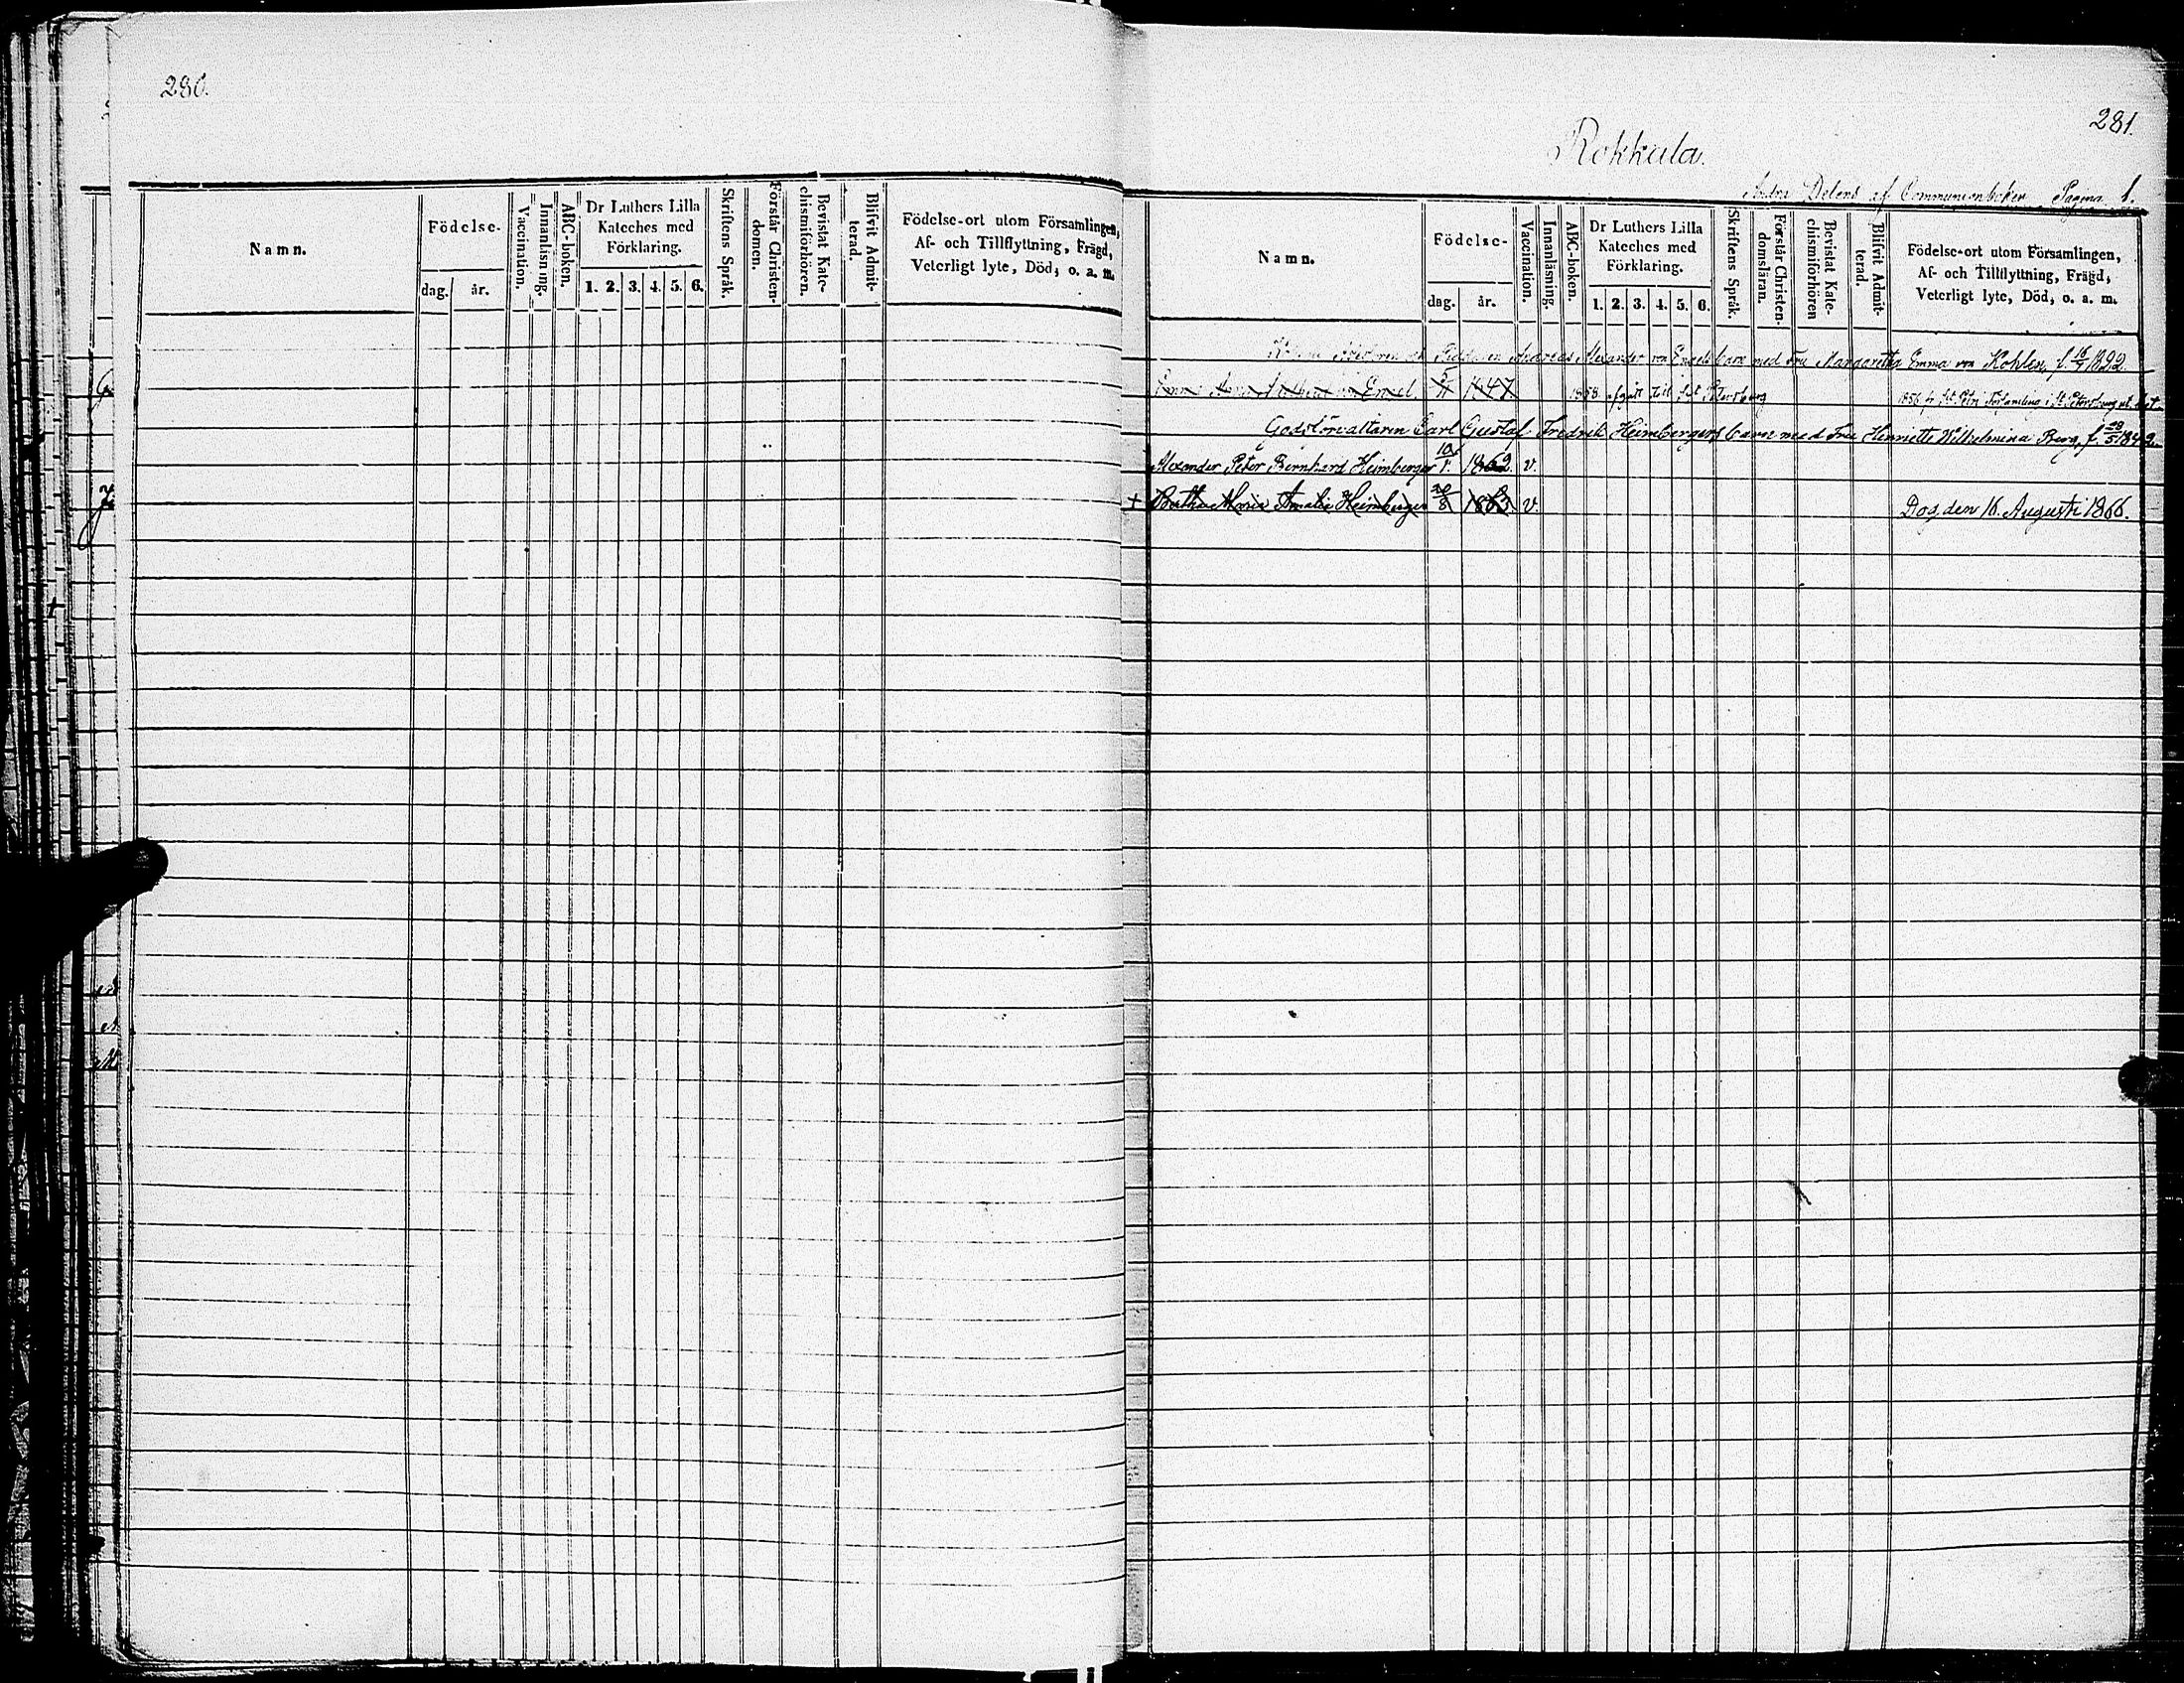 280.
Namn.
Födelse-
dag. år.
Vaccination.
Innanläsning.
ABC-boken.
Dr Luthers Lilla
Kateches med
Förklaring.
1. 2. 3. 4. 5. 6.
Skriftens Språk.
Förstår Christen-
domen.
Bevistat Kate-
chismiförhören.
Blifvit Admit-
terad.
Födelse-ort utom Församlingen,
Af- och Tillflyttning, Frägd,
Veterligt lyte, Död, o. a. m.
281.
Rokkala.
Andra Delens af Communionboken Pagina 1.
Namn.
Födelse-
dag. år.
Vaccination.
Innanläsning.
ABC-boken.
Dr Luthers Lilla
Kateches med
Förklaring.
1. 2. 3. 4. 5. 6.
Skriftens Språk.
Förstår Christen-
domsläran.
Bevistat Kate-
chismiförhören
Blifvit Admit-
terad.
Födelse-ort utom Församlingen,
Af- och Tillflyttning, Frägd,
Veterligt lyte, Död, o. a. m.
Andreas Alexander von Engels barn med Fru Margaretha Emma von Kohlen, f. 16/7 1822.
Engel. 1847. 1858 afgått till S:t Petersburg 1856 fr. S:t Petri Församling i St. Petersburg
Godsförvaltaren Carl Gustaf Fredrik Heimbergers barn med Fru Henriette Wilhelmina Berg, f. 28/5 1842.
Alexander Peter Bernhard Heimberger 10/1. 1862. v.
+ Bertha Maria Amalia Heimberger 20/8 1863. v. Dog den 16. Augusti 1866.